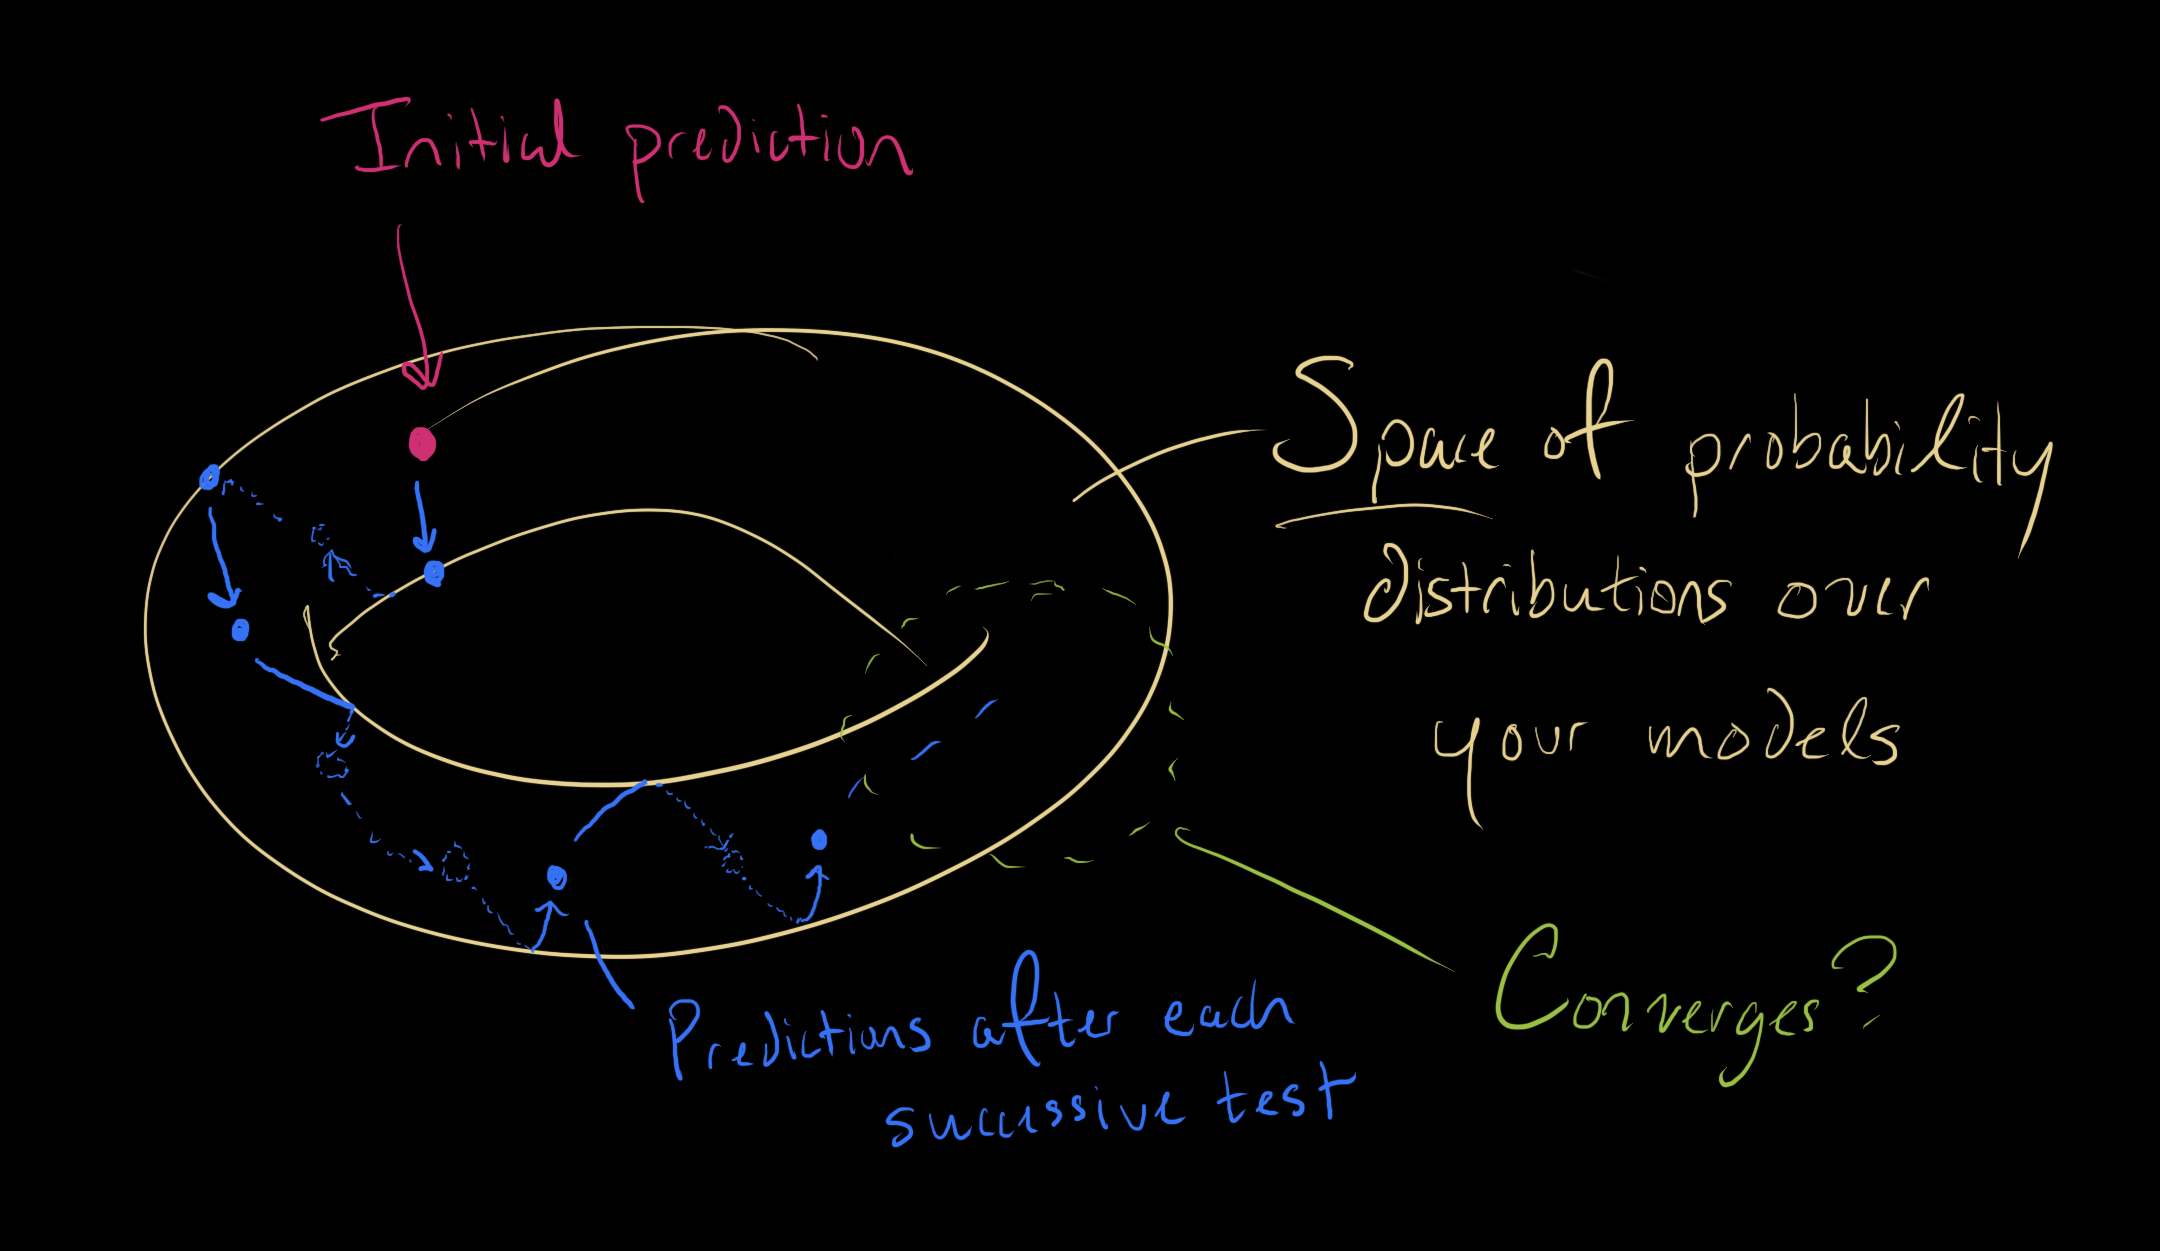 Initial prediction
Space of probability
distributions over
your models
Converges?
Predictions after each
successive test